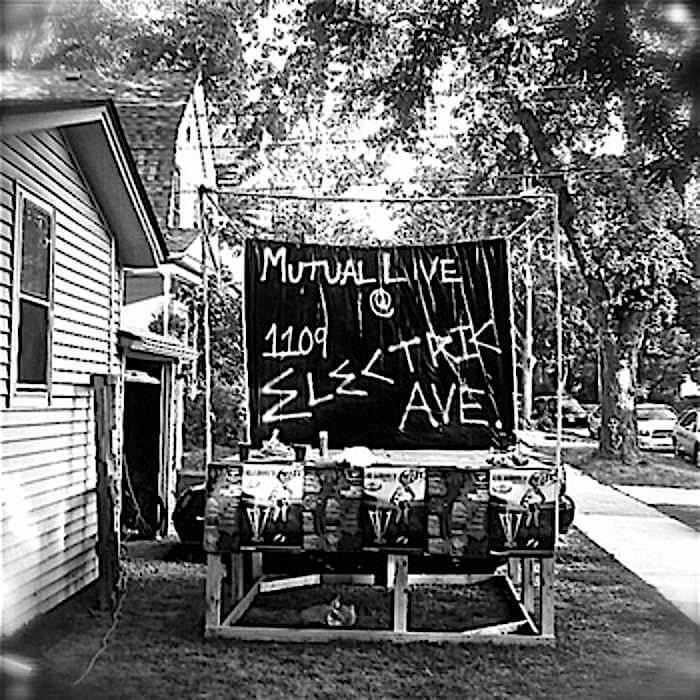 MUTUAL LIVE
@
1109
ELECTRIK
AVE.